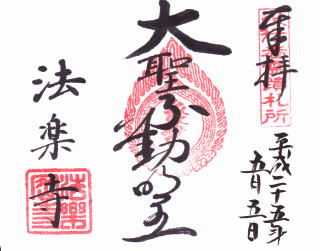 奉拝
平成二十五年
五月五日
大聖不動明王
法楽寺